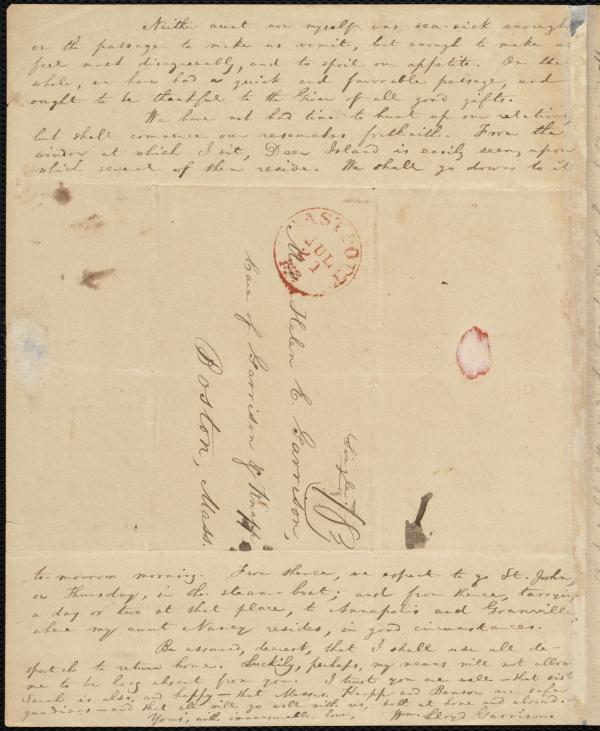 Neither aunt nor myself was sea-sick enough
on the passage to make us vomit, but enough to make us
feel most disagreeably, and to spoil our appetite. On the
whole, we have had a quick and favorable passage, and
ought to be thankful to the Giver of all good gifts.
We have not had time to hunt up our relations,
but shall commence our researches forthwith. From the
window at which I sit, Deer Island is easily seen, upon
which several of them reside. We shall go down to it
EASTPORT
JUL
21
Me
Mrs. Helen E. Garrison,
Care of Garrison & Knapp
Boston, Mass.
Single
18¾
to-morrow morning. From thence, we expect to go St. John,
on Thursday, in the steam-boat; and from thence, tarrying
a day or two at that place, to Annapolis and Granville,
where my aunt Nancy resides, in good circumstances.
Be assured, dearest, that I shall use all de-
spatch to return home. Luckily, perhaps, my means will not allow
me to be long absent from you. I trust you are well — that sist
Sarah is also, and happy — that Messrs. Knapp and Benson are safer
guardians — and that all will go well with us, both at home and abroad.
Yours, with immeasurable love, Wm. Lloyd Garrison.